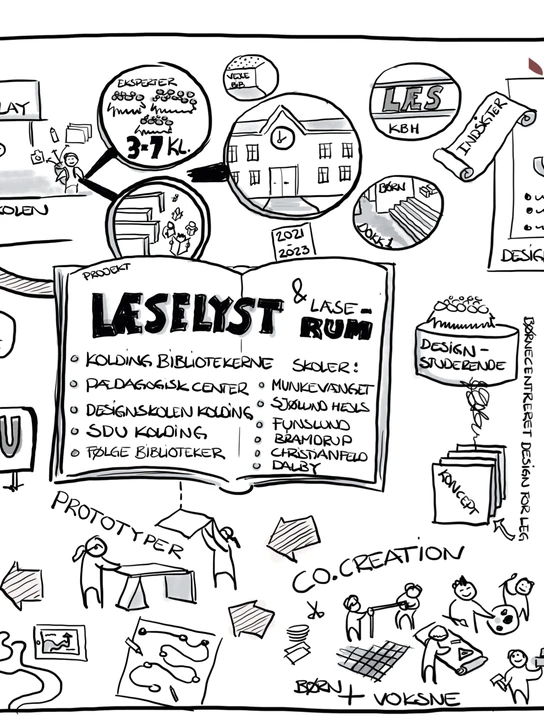 EKSPERTER
3-7 KL.
VEJLE
BIB
LÆS
KBH
INDSIGTER
LAY
KOLEN
BØRN
DOKK1
2021
-
2023
DESIGN
PROJEKT
LÆSELYST & LÆSE-
RUM
KOLDING BIBLIOTEKERNE
PÆDAGOGISK CENTER
DESIGNSKOLEN KOLDING
SDU KOLDING
FØLGE BIBLIOTEKER
SKOLER:
MUNKEVÆNGET
SJØLUND HEJLS
FYNSLUND
BRAMDRUP
CHRISTIANFELD
DALBY
DESIGN-
STUDERENDE
KONCEPT
BØRNECENTRERET DESIGN FOR LEG
U
PROTOTYPER
CO.CREATION
BØRN + VOKSNE